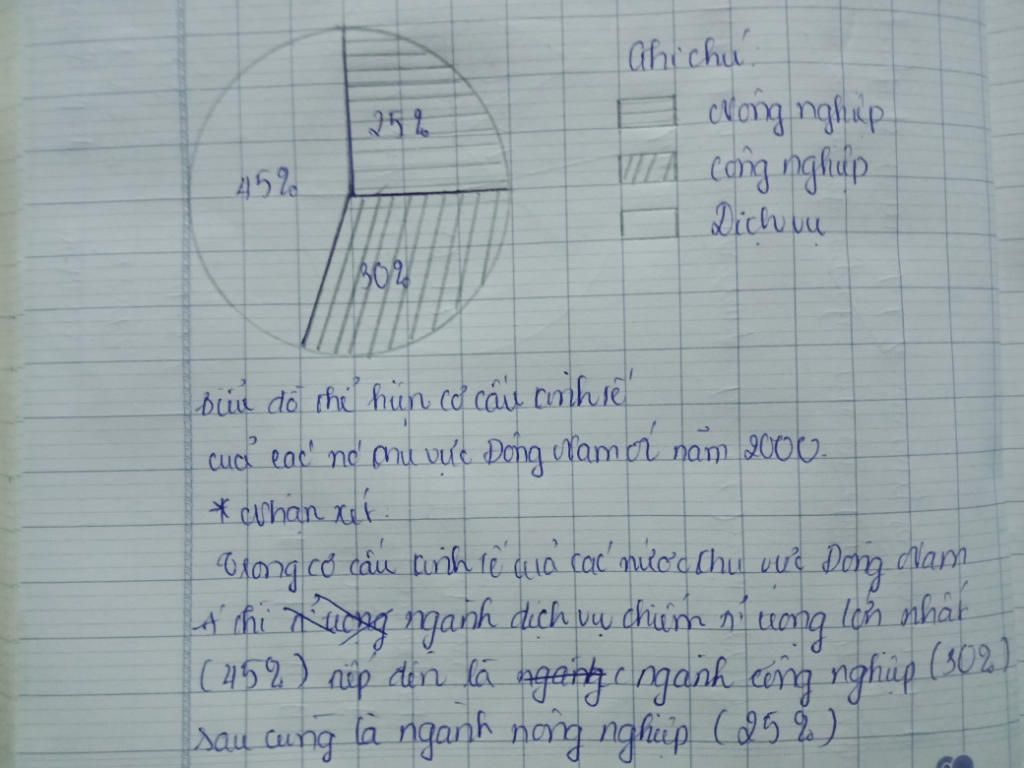 25%
45%
30%
Ghi chú:
Nông nghiệp
Công nghiệp
Dịch vụ
Biểu đồ thể hiện cơ cấu kinh tế
của các nc khu vực Đông Nam Á năm 2000.
* Nhận xét.
Trong cơ cấu kinh tế của các nước khu vực Đông Nam
Á thì ngành dịch vụ chiếm tỉ trọng lớn nhất
(45%) tiếp đến là ngành công nghiệp (30%)
sau cùng là ngành nông nghiệp (25%)